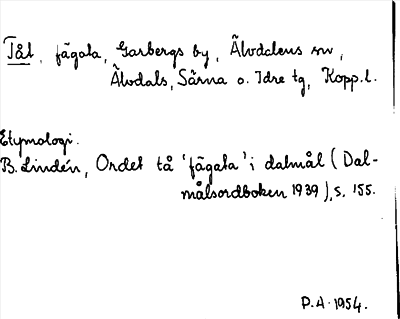 Tåt, fägata, Garbergs by, Älvdalens sn,
Älvdals, Särna o. Idre tg, Kopp.l.
Etymologi.
B. Lindén, Ordet tå 'fägata' i dalmål (Dal-
målsordboken 1939), s. 155.
P.A. 1954.